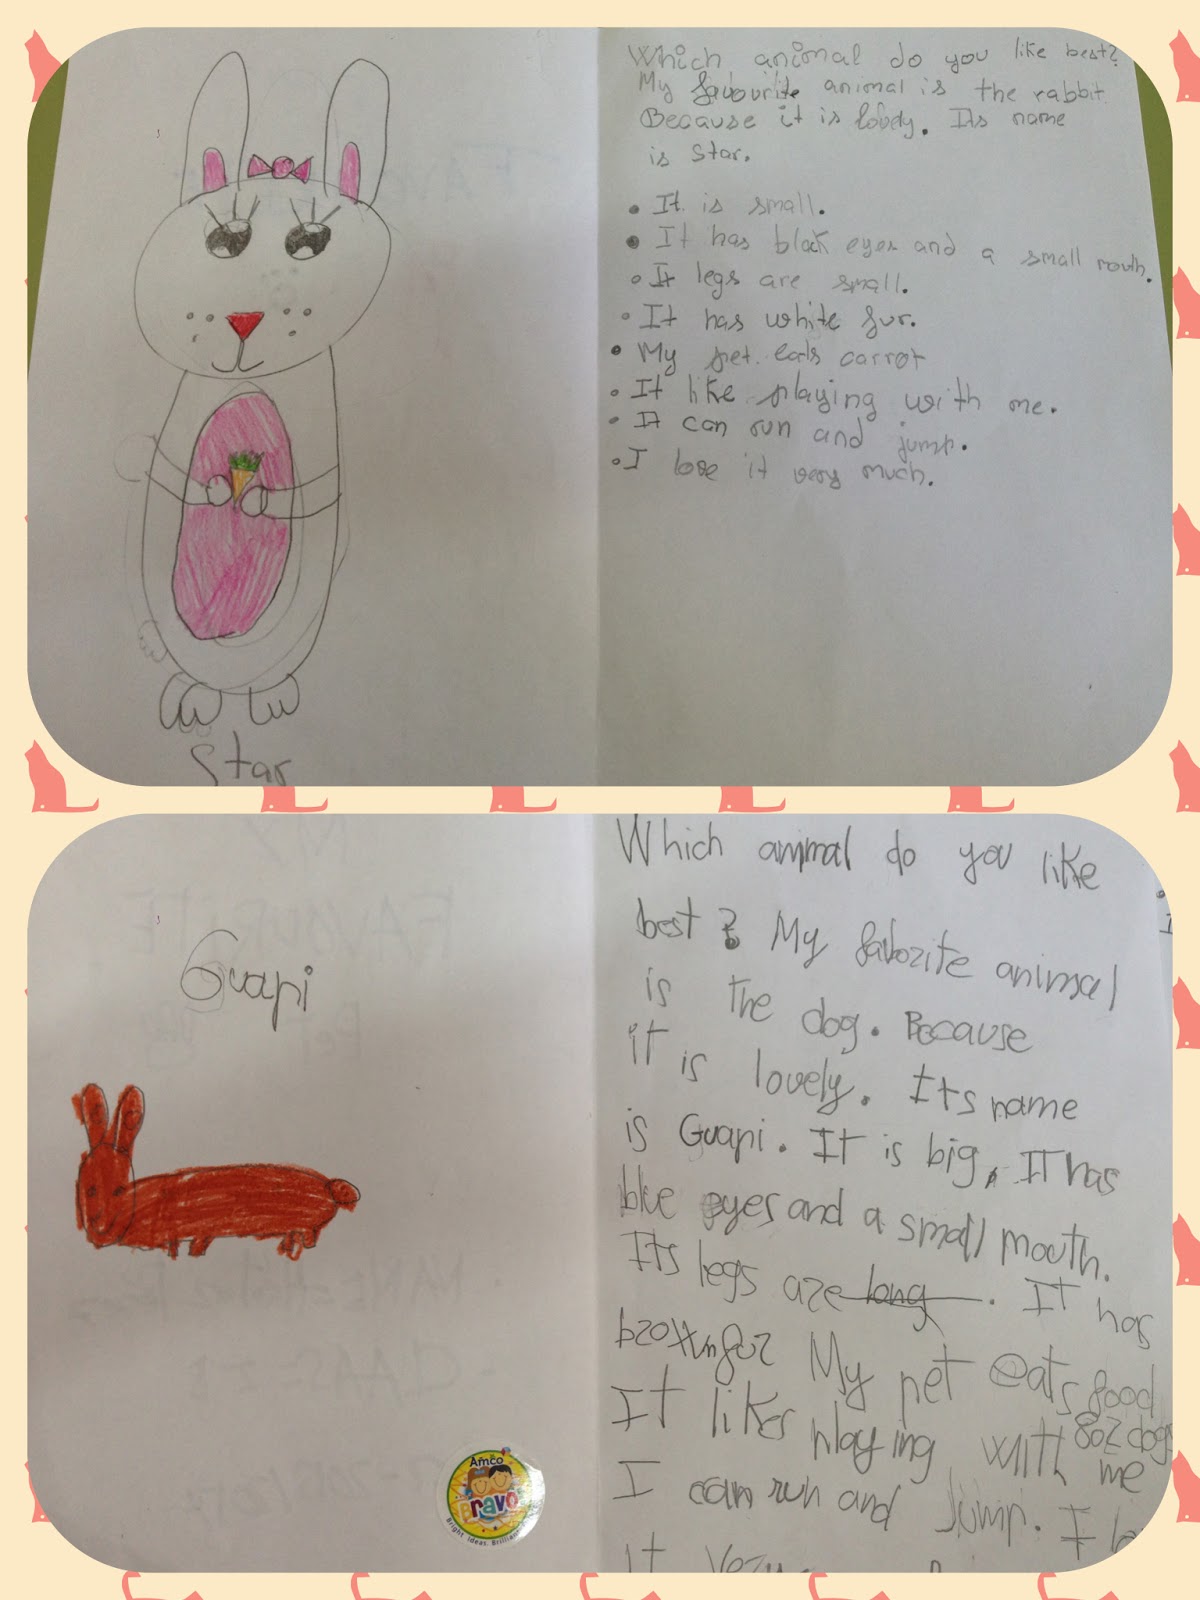 Which animal do you like best?
My favourite animal is the rabbit.
Because it is lovely. Its name
is Star.
• It is small.
• It has black eyes and a small mouth.
• It legs are small.
• It has white fur.
• My pet eats carrot
• It like playing with me.
• It can run and jump.
• I love it very much.
Star
Guapi
Which animal do you like
best? My favorite animal
is the dog. Because
it is lovely. Its name
is Guapi. It is big. It has
blue eyes and a small mouth.
Its legs are long. It has
My pet eats food
for dogs
It likes playing with me
I can run and jump. I
it very
Amco
Bravo
Bright Ideas.
MY
FAVOURITE
PET